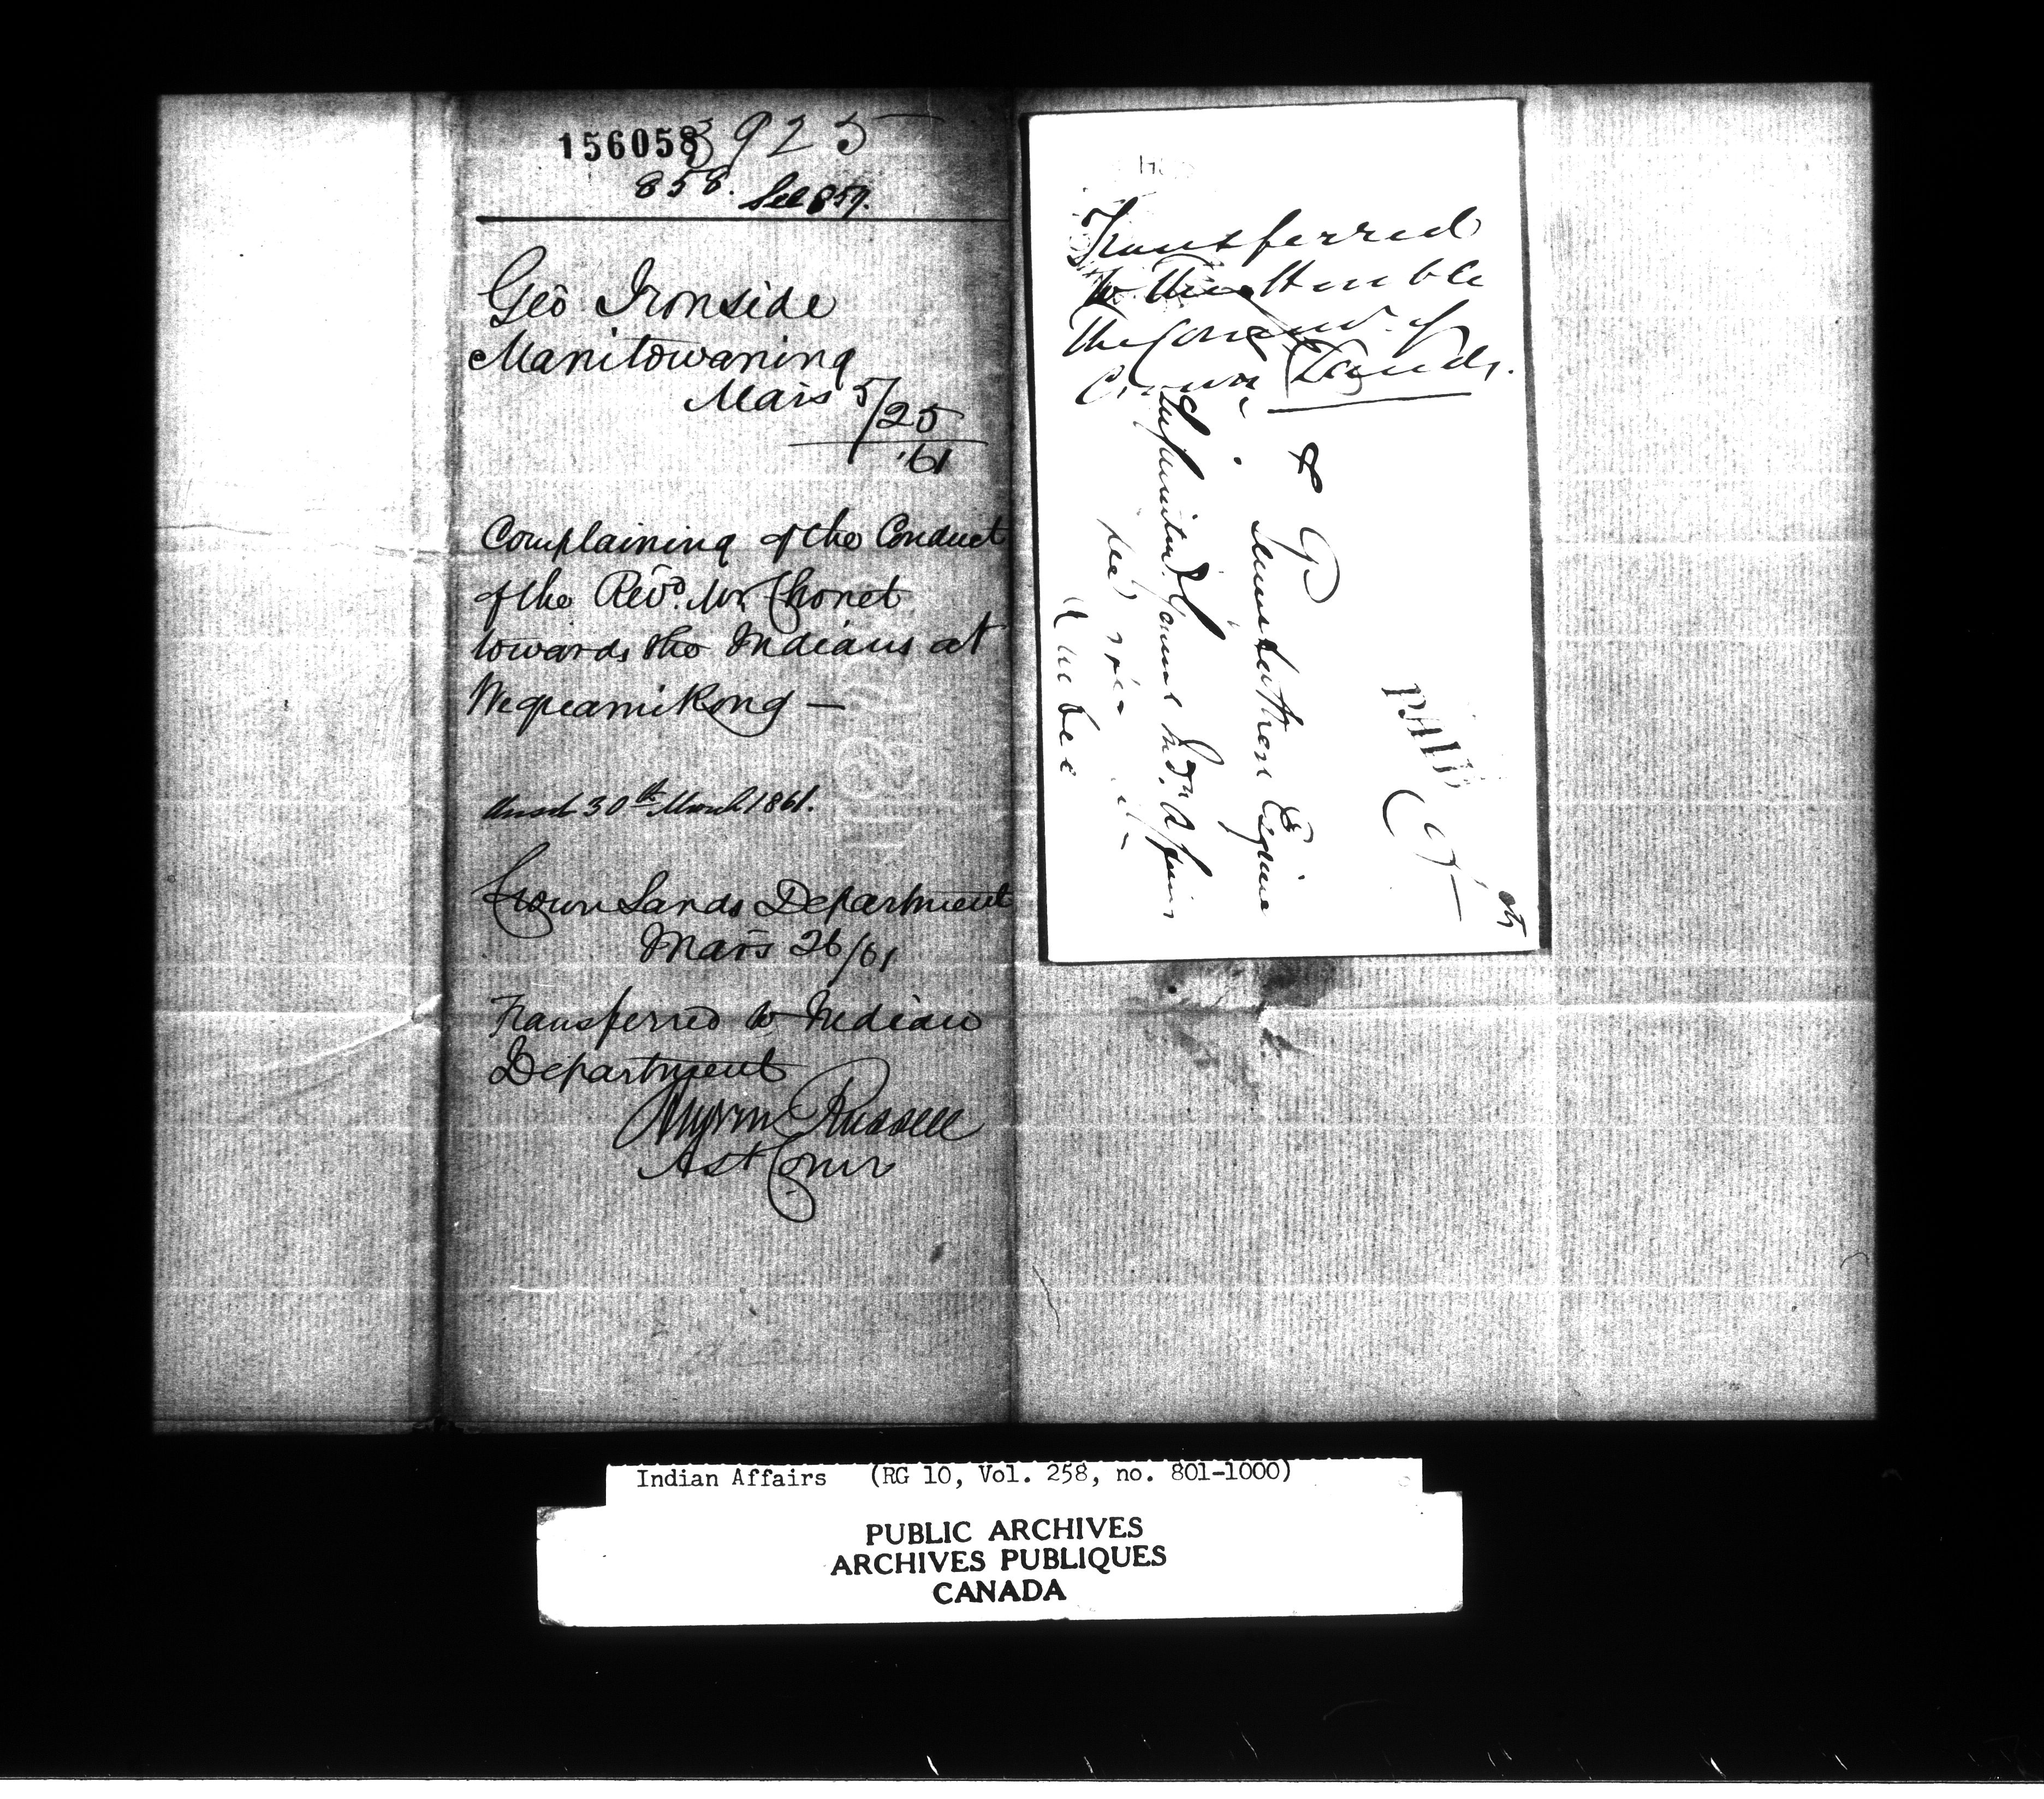 156058
3925
858. See 859.
Geo Ironside
Manitowaning
Mars 5/25
'61
Complaining of the Conduct
of the Revd. Mr Chonet
towards the Indians at
Wequamikong —
Ansd 30th March 1861.
Crown Lands Department
Mars 26/61
Transferred to Indian
Department
Russell
Ast Comr
Transferred
to the Honble
the Commr. of
Crown Lands.
Esquire
Affairs
Quebec
PAID
Indian Affairs (RG 10, Vol. 258, no. 801-1000)
PUBLIC ARCHIVES
ARCHIVES PUBLIQUES
CANADA